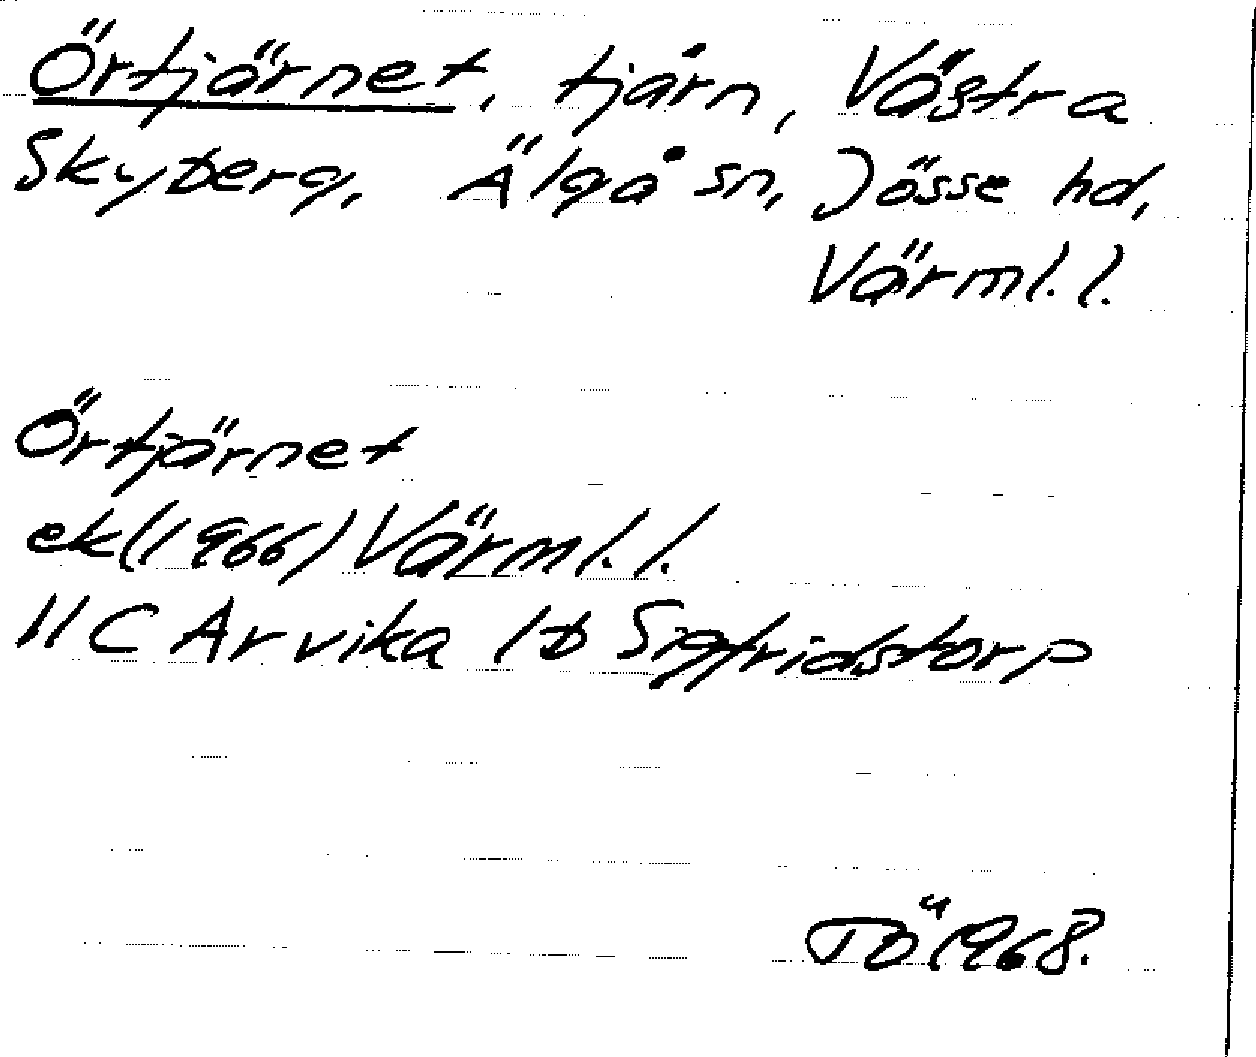 Örtjärnet, tjärn, Västra
Skyberg, Älgå sn, Jösse hd,
Värml. l.
Örtjärnet
ek (1966) Värml. l.
11 C Arvika 1b Sigfridstorp
TÖ 1968.